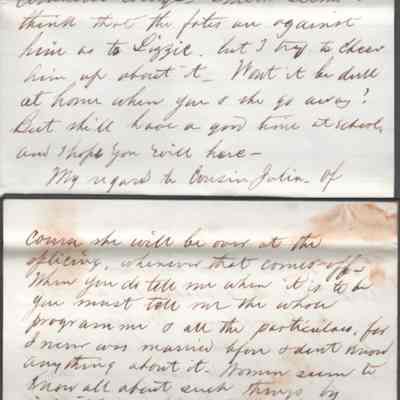 think that the fates are against
him as to Lizzie, but I try to cheer
him up about it – Wont it be dull
at home when you & she go away?
But she'll have a good time at school
and I hope you will here –
My regard to Cousin Julia. of
course she will be over at the
splicing, whenever that comes off –
When you do tell me when it is to be
you must tell me the whole
programme & all the particulars, for
I never was married before & dont know
anything about it. Women seem to
know all about such things by